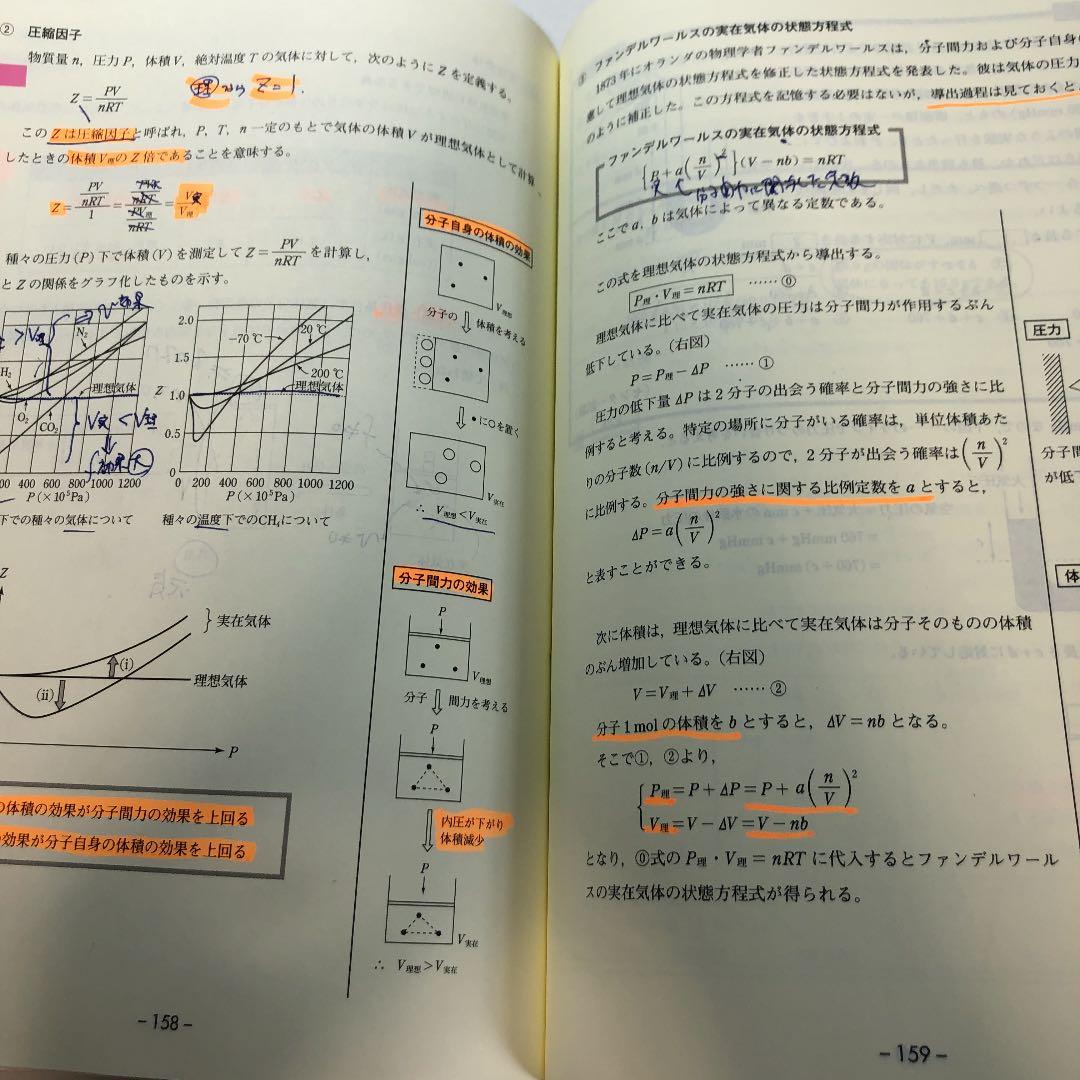 ② 圧縮因子
物質量 n, 圧力 P, 体積 V, 絶対温度 T の気体に対して, 次のように Z を定義する。
Z = PV/nRT
理 Z=1.
この Z は圧縮因子と呼ばれ, P, T, n 一定のもとで気体の体積 V が理想気体として計算
したときの体積 V理 の Z 倍であることを意味する。
Z = (PV/nRT)/1 = V実/V理
種々の圧力(P)下で体積(V)を測定して Z = PV/nRT を計算し,
と Z の関係をグラフ化したものを示す。
⇒ V効果
> V理
N₂
H₂
理想気体
O₂
CO₂
V実 < V理
効果 大
400 600 800 1000 1200
P(×10⁵Pa)
下での種々の気体について
2.0
1.5
Z 1.0
0.5
0
-70℃
20℃
200℃
理想気体
0 200 400 600 800 1000 1200
P(×10⁵Pa)
種々の温度下でのCH₄について
Z
実在気体
(i)
(ii)
理想気体
P
の体積の効果が分子間力の効果を上回る
の効果が分子自身の体積の効果を上回る
分子自身の体積の効果
V理想
分子の 体積を考える
•に○を置く
V実在
∴ V理想<V実在
分子間力の効果
P
V理想
分子 間力を考える
P
内圧が下がり
体積減少
P
V実在
∴ V理想>V実在
-158-
ファンデルワールスの実在気体の状態方程式
1873年にオランダの物理学者ファンデルワールスは, 分子間力および分子自身の
慮して理想気体の状態方程式を修正した状態方程式を発表した。彼は気体の圧力
のように補正した。この方程式を記憶する必要はないが, 導出過程は見ておくと
ファンデルワールスの実在気体の状態方程式
{P+a(n/V)²}(V-nb)=nRT
ここで a, b は気体によって異なる定数である。
この式を理想気体の状態方程式から導出する。
P理・V理=nRT ……⓪
理想気体に比べて実在気体の圧力は分子間力が作用するぶん
低下している。(右図)
P=P理-ΔP ……①
圧力の低下量 ΔP は 2 分子の出会う確率と分子間力の強さに比
例すると考える。特定の場所に分子がいる確率は, 単位体積あた
りの分子数(n/V)に比例するので, 2 分子が出会う確率は(n/V)²
に比例する。分子間力の強さに関する比例定数を a とすると,
ΔP=a(n/V)²
と表すことができる。
次に体積は, 理想気体に比べて実在気体は分子そのものの体積
のぶん増加している。(右図)
V=V理+ΔV ……②
分子 1 mol の体積を b とすると, ΔV=nb となる。
そこで①, ②より,
P理=P+ΔP=P+a(n/V)²
V理=V-ΔV=V-nb
となり, ⓪式の P理・V理=nRT に代入するとファンデルワール
スの実在気体の状態方程式が得られる。
圧力
分子間
が低下
体
-159-